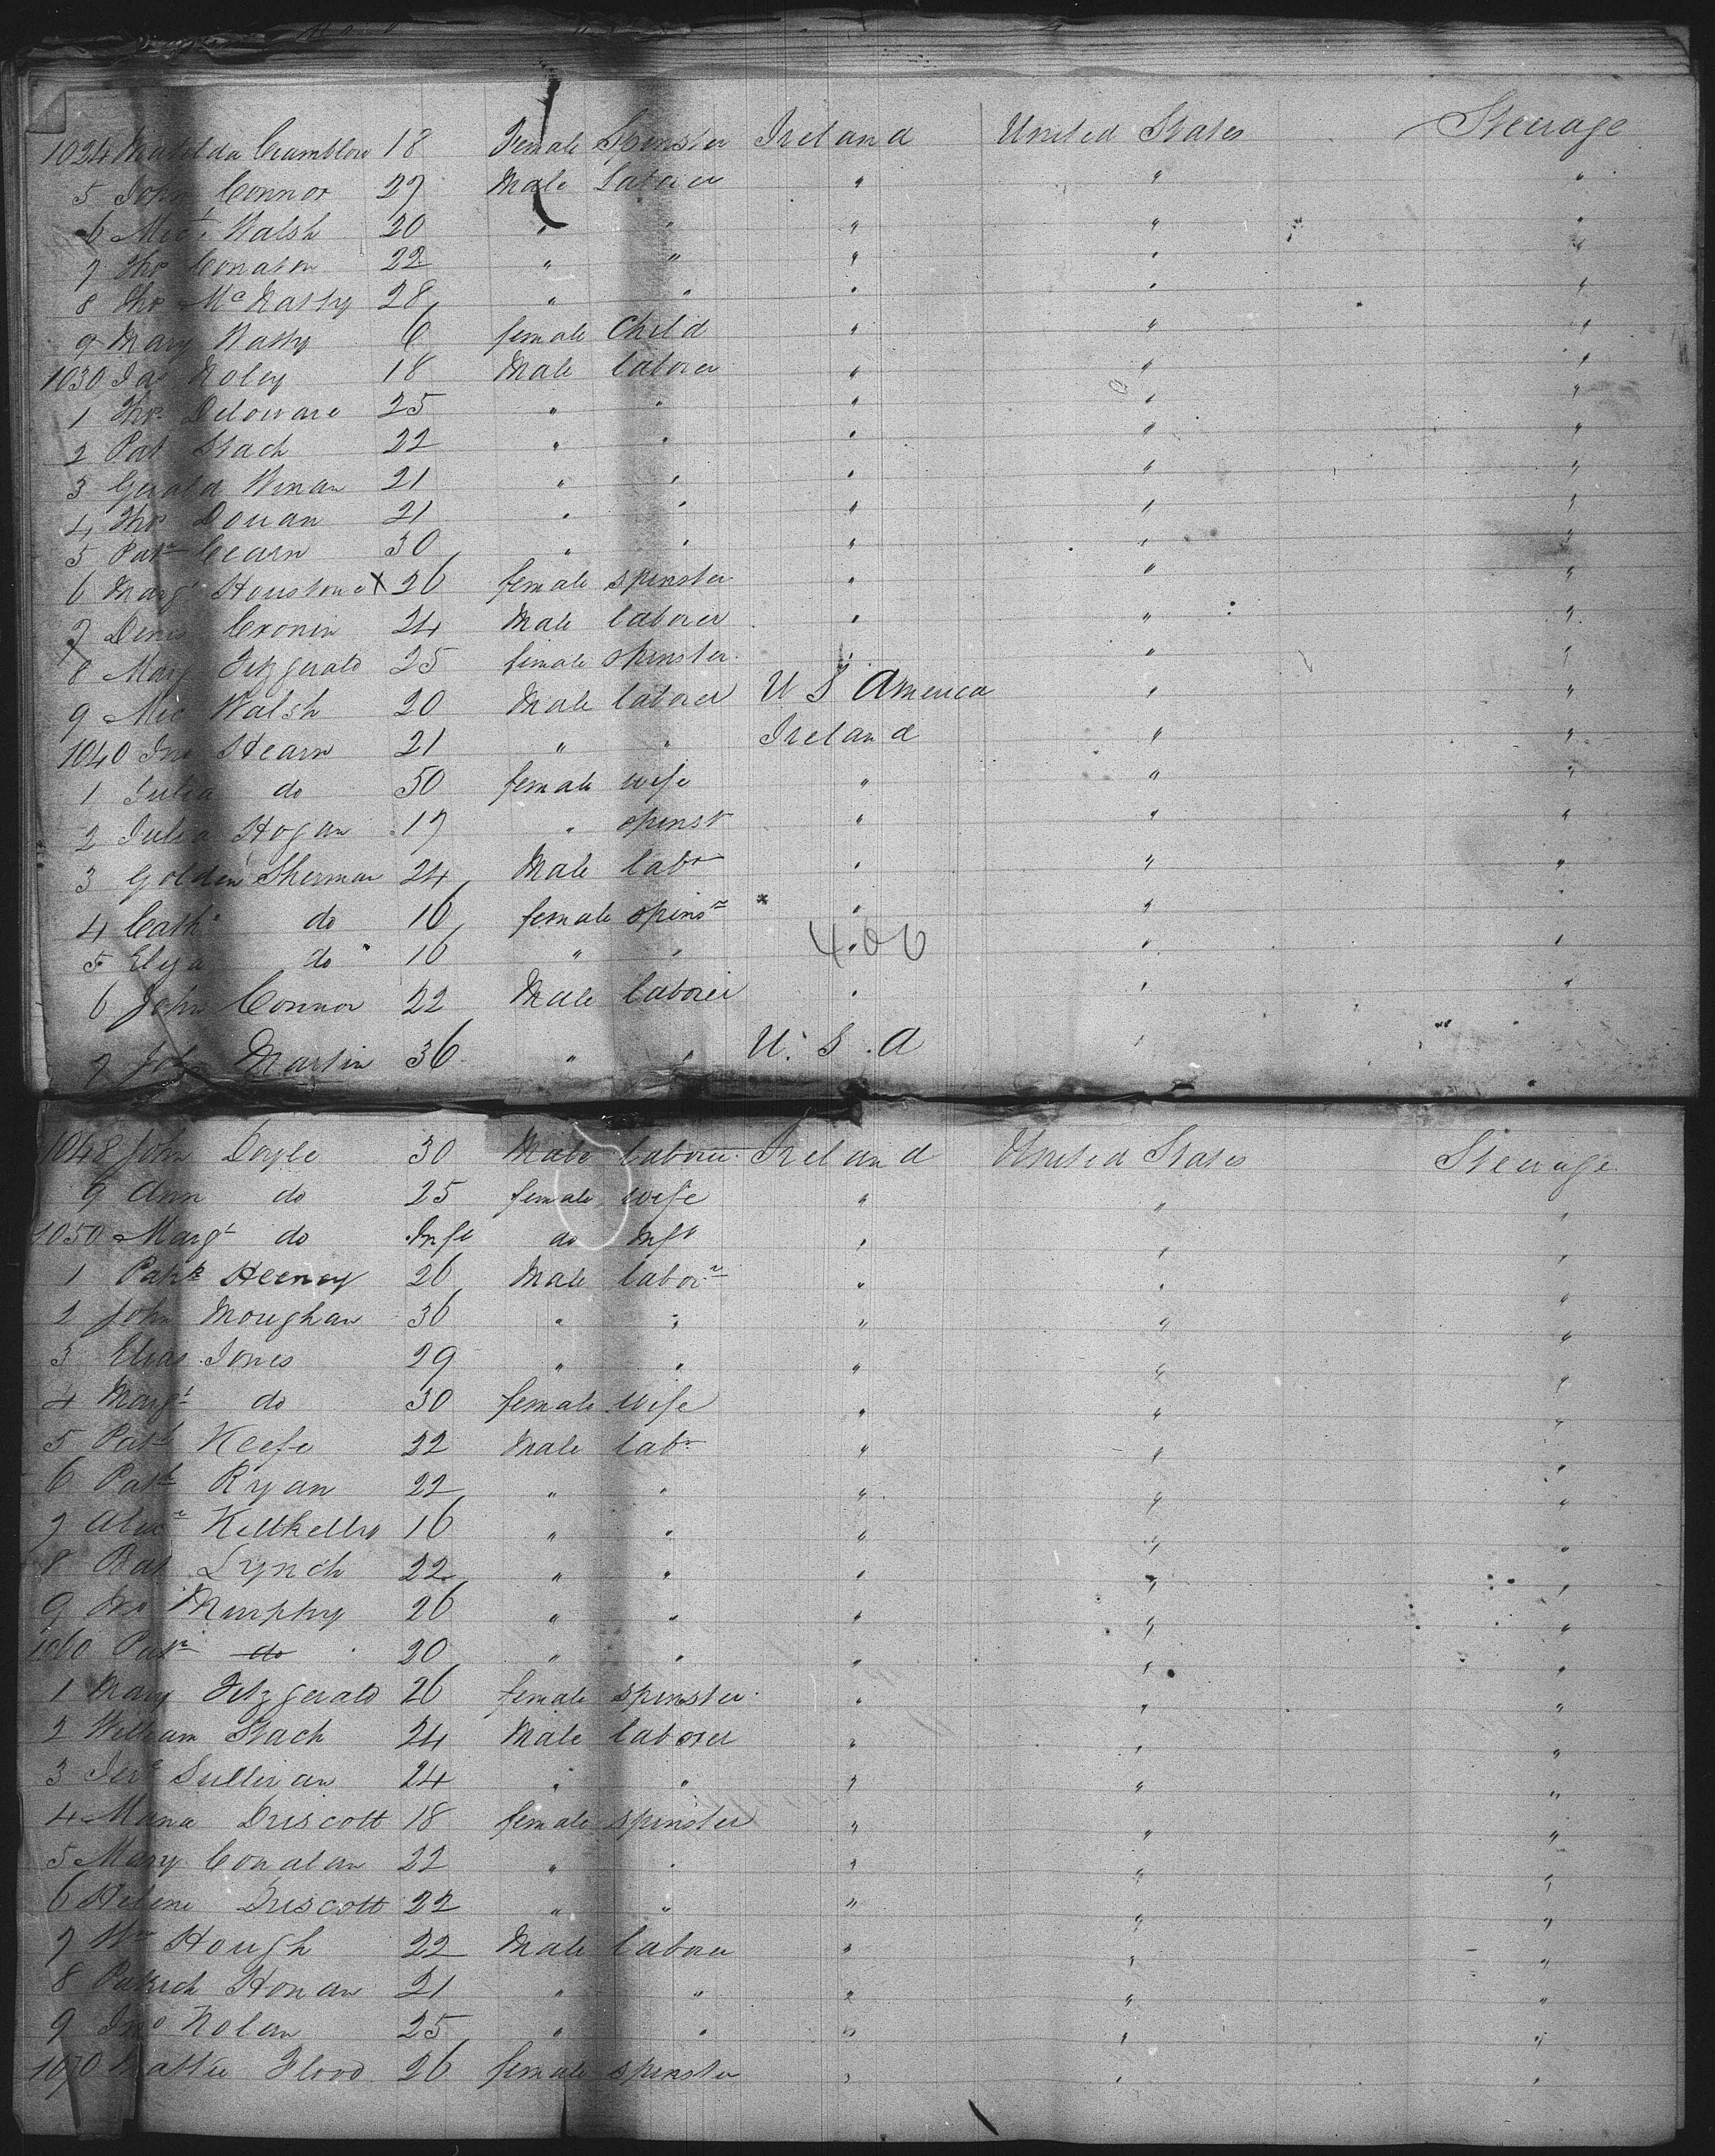 1024 Matilda Cramblow 18 Female Spinster Ireland United States Steerage
5 John Connor 27 Male Laborer " " "
6 Mic. Walsh 20 " " " " "
7 Tho 22 " " " " "
8 Tho Mc Natty 28 " " " " "
9 Mary Natty 6 female Child " " "
1030 Jas Noley 18 Male laborer " " "
1 Tho Deloware 25 " " " " "
2 Pat Stach 22 " " " " "
3 Gerald 21 " " " " "
4 Tho 21 " " " " "
5 Patk 30 " " " " "
6 Margt Houstone X 26 female spinster " " "
7 Denis Cronin 24 Male laborer " " "
X 8 Mary Fitzgerald 25 female spinster " " "
9 Mic Walsh 20 Male laborer U S America " "
1040 Jno Hearn 21 " " Ireland " "
1 Julia do 50 female wife " " "
2 Julia Hogan 17 " spinst " " "
3 Golden Sherman 24 Male labr " " "
4 Cath do 16 female spinsr " " "
5 Eliza do 16 " " " " "
406
6 John Connor 22 Male laborer " " "
7 John Martin 36 " " U. S. A " "
1048 John Doyle 30 Male laborer Ireland United States Steerage
9 Ann do 25 female wife " " "
1050 Margt do Inft do Inft " " "
1 Patk Heeney 26 Male labor " " "
2 John Moughan 36 " " " " "
3 Elias Jones 29 " " " " "
4 Margt do 30 female wife " " "
5 Patk Keefe 22 Male labr " " "
6 Patk Ryan 22 " " " " "
7 Alexr Killkelly 16 " " " " "
8 Bat Lynch 22 " " " " "
9 Jno Murphy 26 " " " " "
1060 Patk do 20 " " " " "
1 Mary Fitzgerald 26 female spinster " " "
2 William Stach 24 Male laborer " " "
3 Jere Sullivan 24 " " " " "
4 Mana Driscoll 18 female spinster " " "
5 Mary Conalan 22 " " " " "
6 Helene Driscoll 22 " " " " "
7 Wm Hough 22 Male laborer " " "
8 Patrick Honan 21 " " " " "
9 Jno Nolan 25 " " " " "
1070 Mattie Flood 26 female spinster " " "